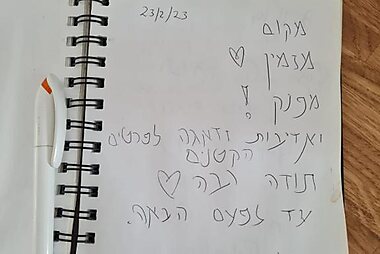 23/2/23
מקום
מזמין ♡
מפנק !
ואדיבות ודאגה לפרטים
הקטנים
תודה רבה ♡
עד לפעם הבאה.